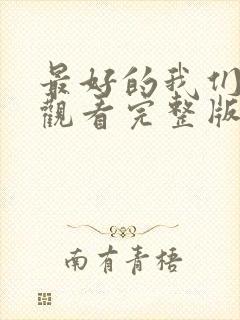 最好的我们
觀看完整版
南有青梧